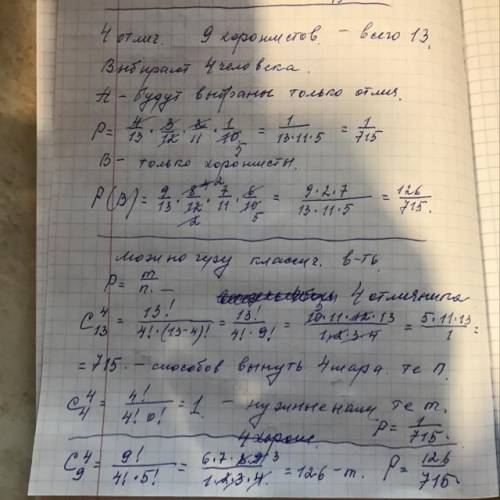 4 отлич. 9 хорошистов. - всего 13.
Выбирают 4 человека.
А - будут выбраны только отлич.
P = 4/13 · 3/12 · 2/11 · 1/10 5 = 1/(13·11·5) = 1/715
В - только хорошисты.
P(B) = 9/13 · 8/12 · 7/11 · 6/10 = (9·2·7)/(13·11·5) = 126/715.
можно через классич. в-ть
P = m/n. 4 отличника
C₁₃⁴ = 13!/(4!·(13-4)!) = 13!/(4!·9!) = (10·11·12·13)/(1·2·3·4) = (5·11·13)/1 =
= 715. - способов вынуть 4 шара. те n.
C₄⁴ = 4!/(4! 0!) = 1. - нужные нам те m.
P = 1/715.
4 хорош.
C₉⁴ = 9!/(4!·5!) = (6·7·8·9)/(1·2·3·4) = 126 - m. P = 126/715